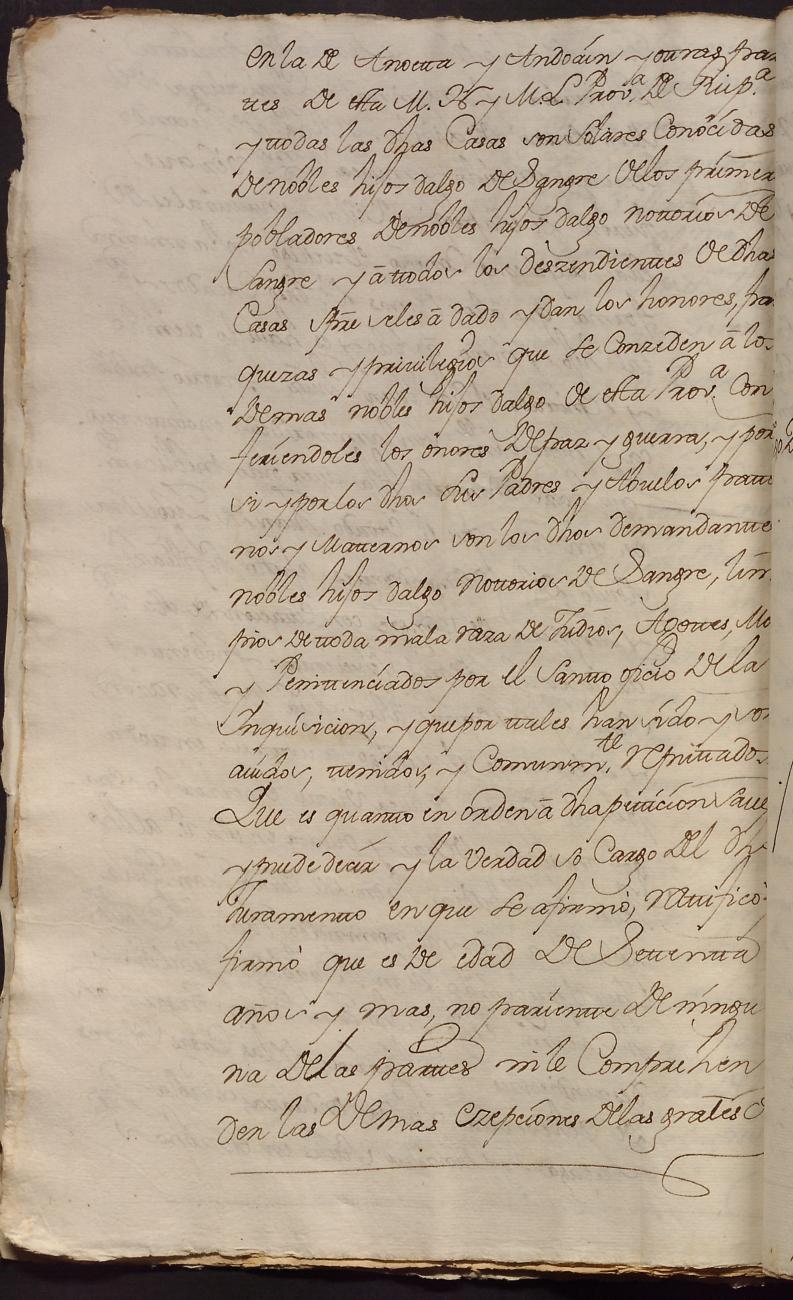 en la de Anoeta y Andoain y otras par
tes de esta M. N. y M. L. Prov.ª de Guip.ª
y todas las dhas Casas son Solares Conocidas
de nobles hijos dalgo de Sangre de los primer
pobladores de nobles hijos dalgo notorios de
Sangre y â todos los deszendientes de dha
Casas spre seles â dado y dan los honores, fra
quezas y privilegios que se Conzeden â lo
demas nobles hijos dalgo de esta Prov.ª Con
feriendoles los onores de paz y guerra, y por
si y por los dhos sus Padres y Abuelos pater
nos y Maternos son los dhos demandante
nobles hijos dalgo notorios de Sangre, lim
pios de toda mala raza de Judios, Agotes, Mo
y Penitenciados por el Santo oficio de la
Inquisicion, y que por tales han sido y son
auidos, tenidos, y Comunm.te reputados
Que es quanto en orden â dha peticion saue
y puede decir y la verdad so Cargo del dho
Juramento en que se afirmó, ratificó
firmó que es de edad de Setenta
años y mas, no pariente de ningu
na de las partes ni le Comprehen
den las demas ezepciones de las grales